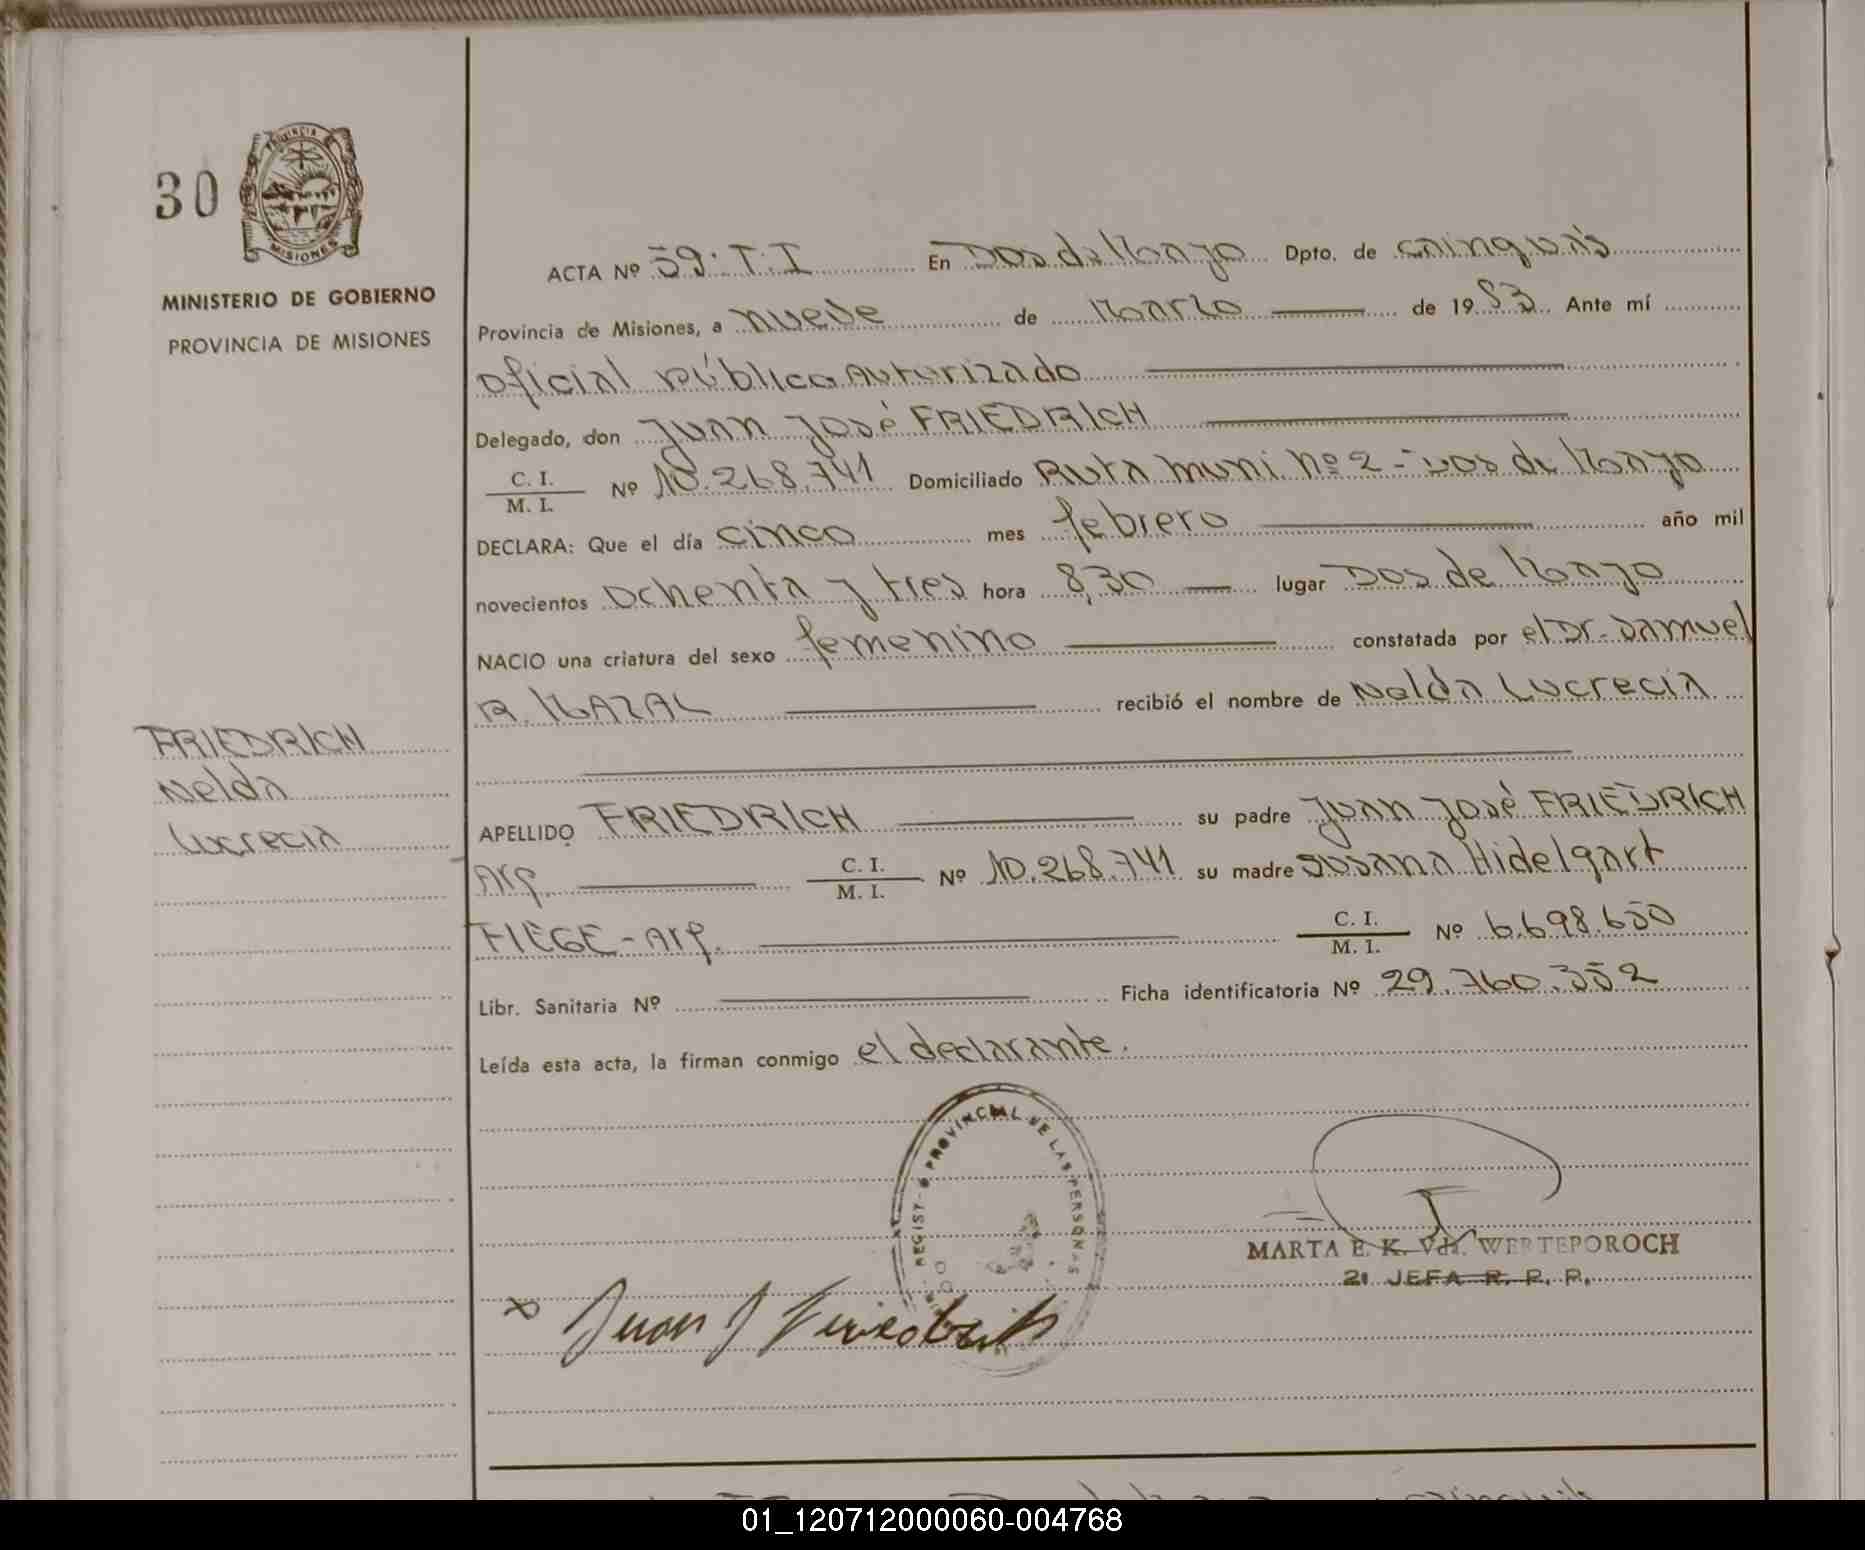 30
PROVINCIA DE
MISIONES
MINISTERIO DE GOBIERNO
PROVINCIA DE MISIONES
FRIEDRICH
Nelda
Lucrecia
ACTA Nº 59: T: I En Dos de Mayo Dpto. de Cainguás
Provincia de Misiones, a nueve de Marzo de 1983 Ante mí
Oficial Público Autorizado
Delegado, don Juan José FRIEDRICH
C. I.
M. I. Nº 10.268.741 Domiciliado Ruta Muni. Nº 2 - Dos de Mayo
DECLARA: Que el día cinco mes febrero año mil
novecientos ochenta y tres hora 8,30 lugar Dos de Mayo
NACIO una criatura del sexo femenino constatada por el Dr. Samuel
R. MAZAL recibió el nombre de Nelda Lucrecia
APELLIDO FRIEDRICH su padre Juan José FRIEDRICH
Arg. C. I.
M. I. Nº 10.268.741 su madre Susana Hidelgart
FIEGE - Arg. C. I.
M. I. Nº 6.698.650
Libr. Sanitaria Nº Ficha identificatoria Nº 29.760.352
Leída esta acta, la firman conmigo el declarante.
PROVINCIAL DE LAS PERSONAS
MARTA E. K. Vda. WERTEPOROCH
2ª JEFA R. P. P.
x Juan J Friedrich
01_120712000060-004768